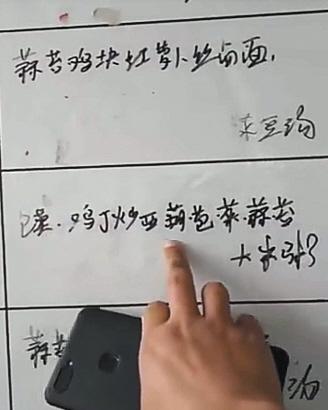 蒜苔鸡块红萝卜丝卤面.
菜豆汤
馍.鸡丁炒西葫芭菜.蒜苔
大米粥
蒜
汤